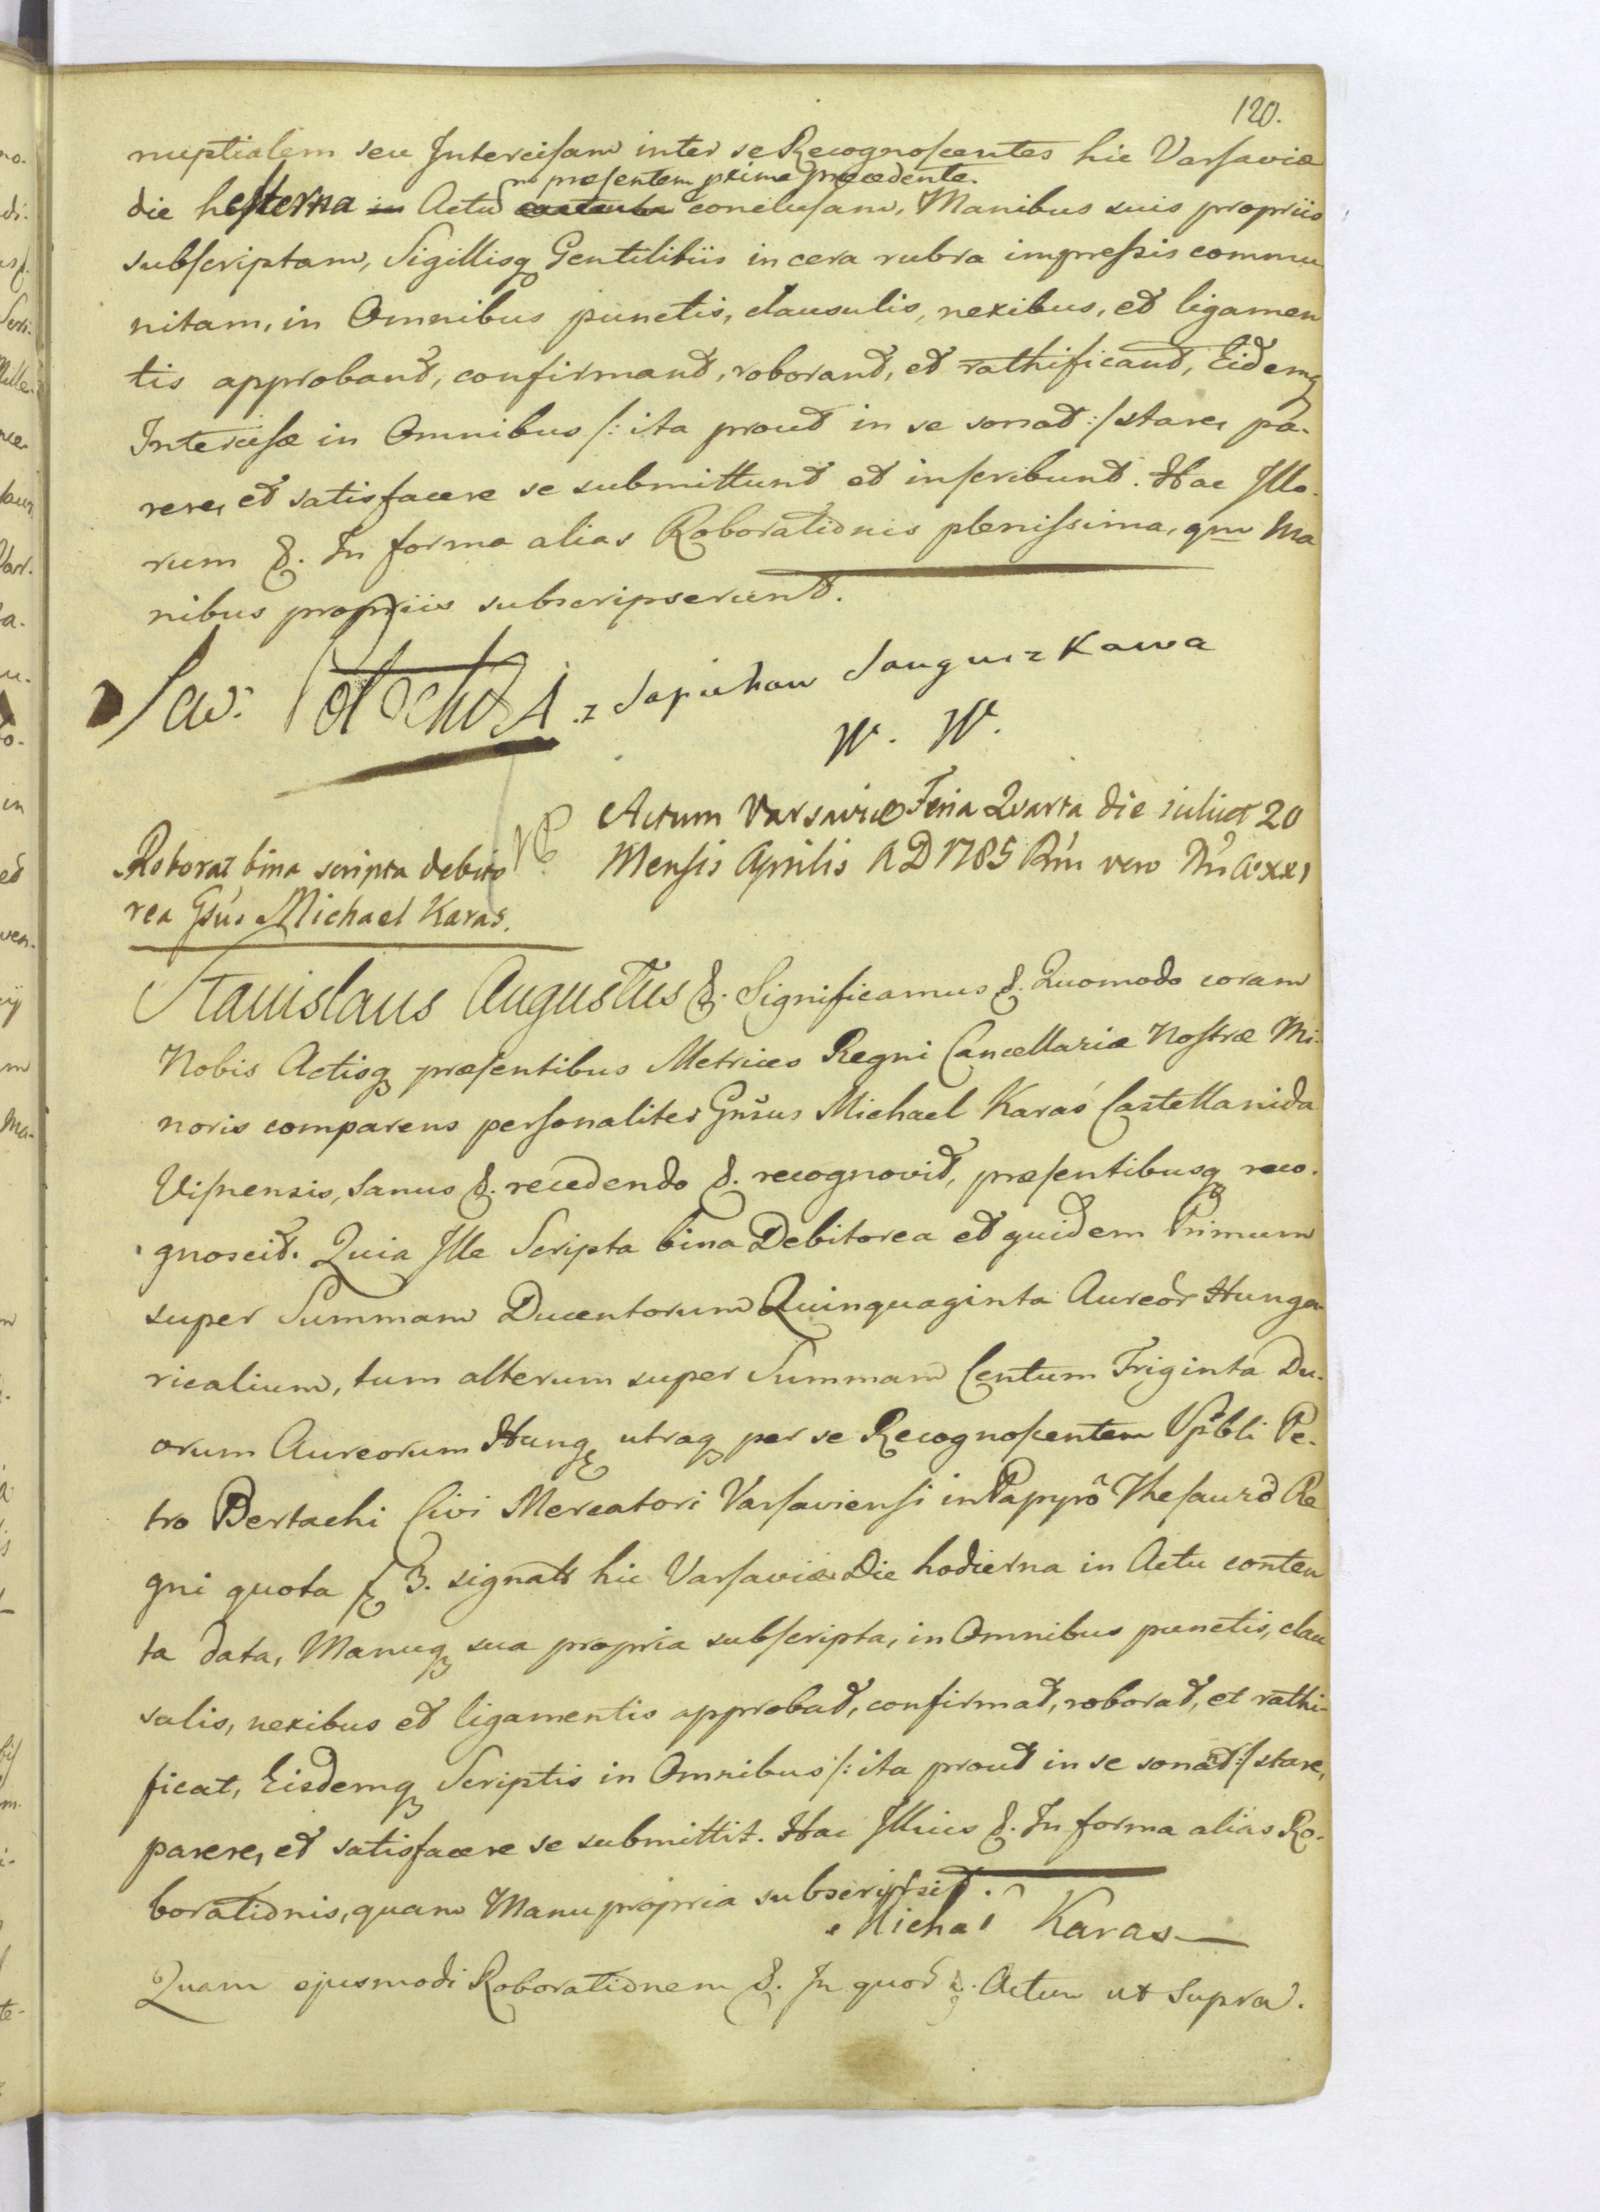 120.
nuptialem seu Intercisam inter se Recognoscentes hic Varsaviæ
præsentem prima præcedente.
die hesterna in Actu contenta conclusam, Manibus suis propriis
subscriptam, Sigillisq Gentilitiis in cera rubra impressis commu
nitam, in Omnibus punctis, clausulis, nexibus, et ligamen
tis approbant, confirmant, roborant, et rathificant, Eidemq
Intercisæ in Omnibus /: ita prout in se sonat :/ stare, pa-
rere, et satisfacere se submittunt et inscribunt. Hac Illo-
rum &. In forma alias Roborationis plenissima, qm Ma
nibus propriis subscripserunt.
Potocki
z Sapiehow Sanguszkowa
W. W.
Actum Varsaviæ Feria Quarta die 20
Mensis Aprilis A D 1785 vero
Roborat bina scripta debito
rea Gsús Michael Karas.
Stanislaus Augustus &. Significamus &. Quomodo coram
Nobis Actisq præsentibus Metrices Regni Cancellariæ Nostræ Mi-
noris comparens personaliter Gnsus Michael Karaś Castellanida
Visnensis, Sanus &. recedendo &. recognovit, præsentibusq reco-
gnoscit. Quia Ille Scripta bina Debitorea et quidem Primum
super Summam Ducentorum Quinquaginta Aureor Hunga-
ricalium, tum alterum super Summam Centum Triginta Du-
orum Aureorum Hung utraq per se Recognoscentem Pe-
tro Bertachi Civi Mercatori Varsaviensi in Papyro Thesauro Re
gni quota 3. signatis hic Varsaviæ Die hodierna in Actu conten
ta data, Manuq sua propria subscripta, in Omnibus punctis, clau
sulis, nexibus et ligamentis approbat, confirmat, roborat, et rathi-
ficat, Eisdemq Scriptis in Omnibus /: ita prout in se sonant :/ stare,
parere, et satisfacere se submittit. Hac Illius &. In forma alias Ro-
borationis, quam Manu propria subscripsit.
Michał Karas
Quam ejusmodi Roborationem &. In quor &. Actum ut Supra.